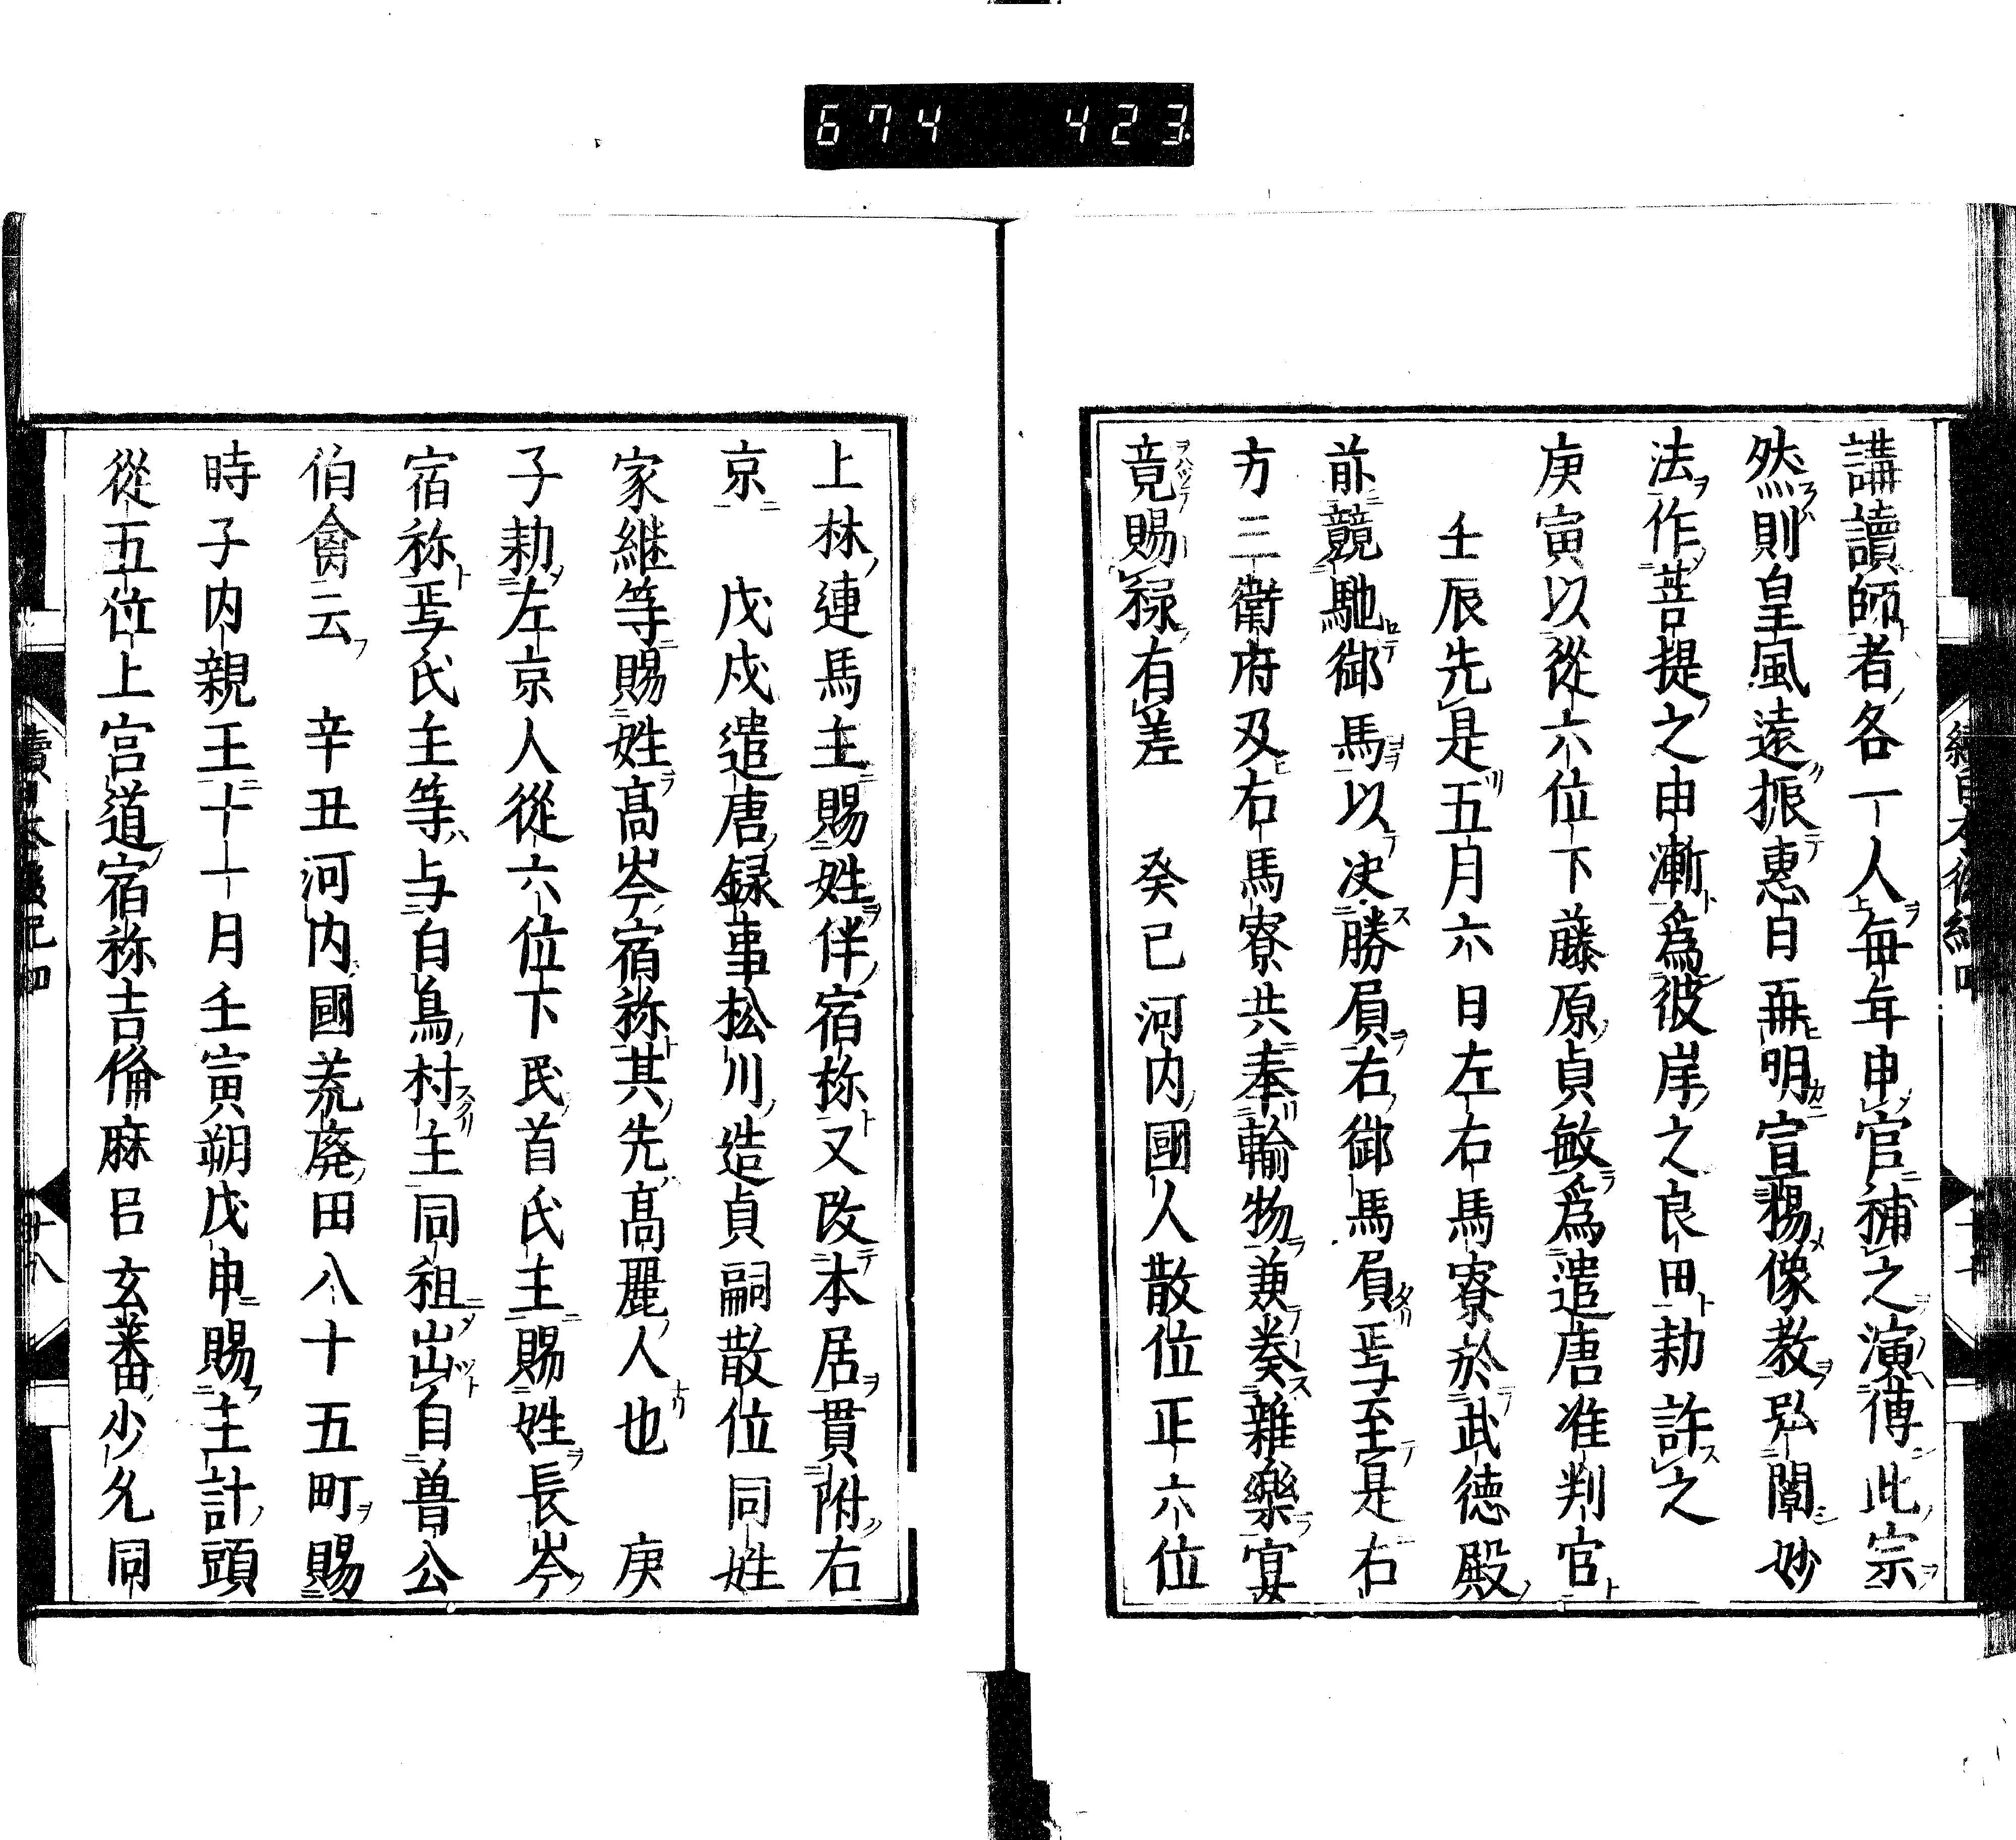 674 423
講讀師者各一人每年申官補之演傳此宗
然則皇風遠振惠日再明宣揚像教弘闡妙
法作菩提之由漸爲彼岸之良田勅許之
庚寅以從六位下藤原貞敏爲遣唐准判官
壬辰先是五月六日左右馬寮於武德殿
前競馳御馬以决勝負右御馬負焉至是右
方三衛府及右馬寮共奉輸物兼奏雜樂宴
竟賜祿有差 癸巳河内國人散位正六位
上林連馬主賜姓伴宿祢又改本居貫附右
京 戊戌遣唐録事松川造貞嗣散位同姓
家継等賜姓髙岑宿祢其先髙麗人也 庚
子勅左京人從六位下民首氏主賜姓長岑
宿祢焉氏主等与白鳥村主同祖出自曽公
伯禽云 辛丑河内國荒廃田八十五町賜
時子内親王十一月壬寅朔戊申賜主計頭
從五位上宮道宿祢吉備麻呂玄蕃少允同